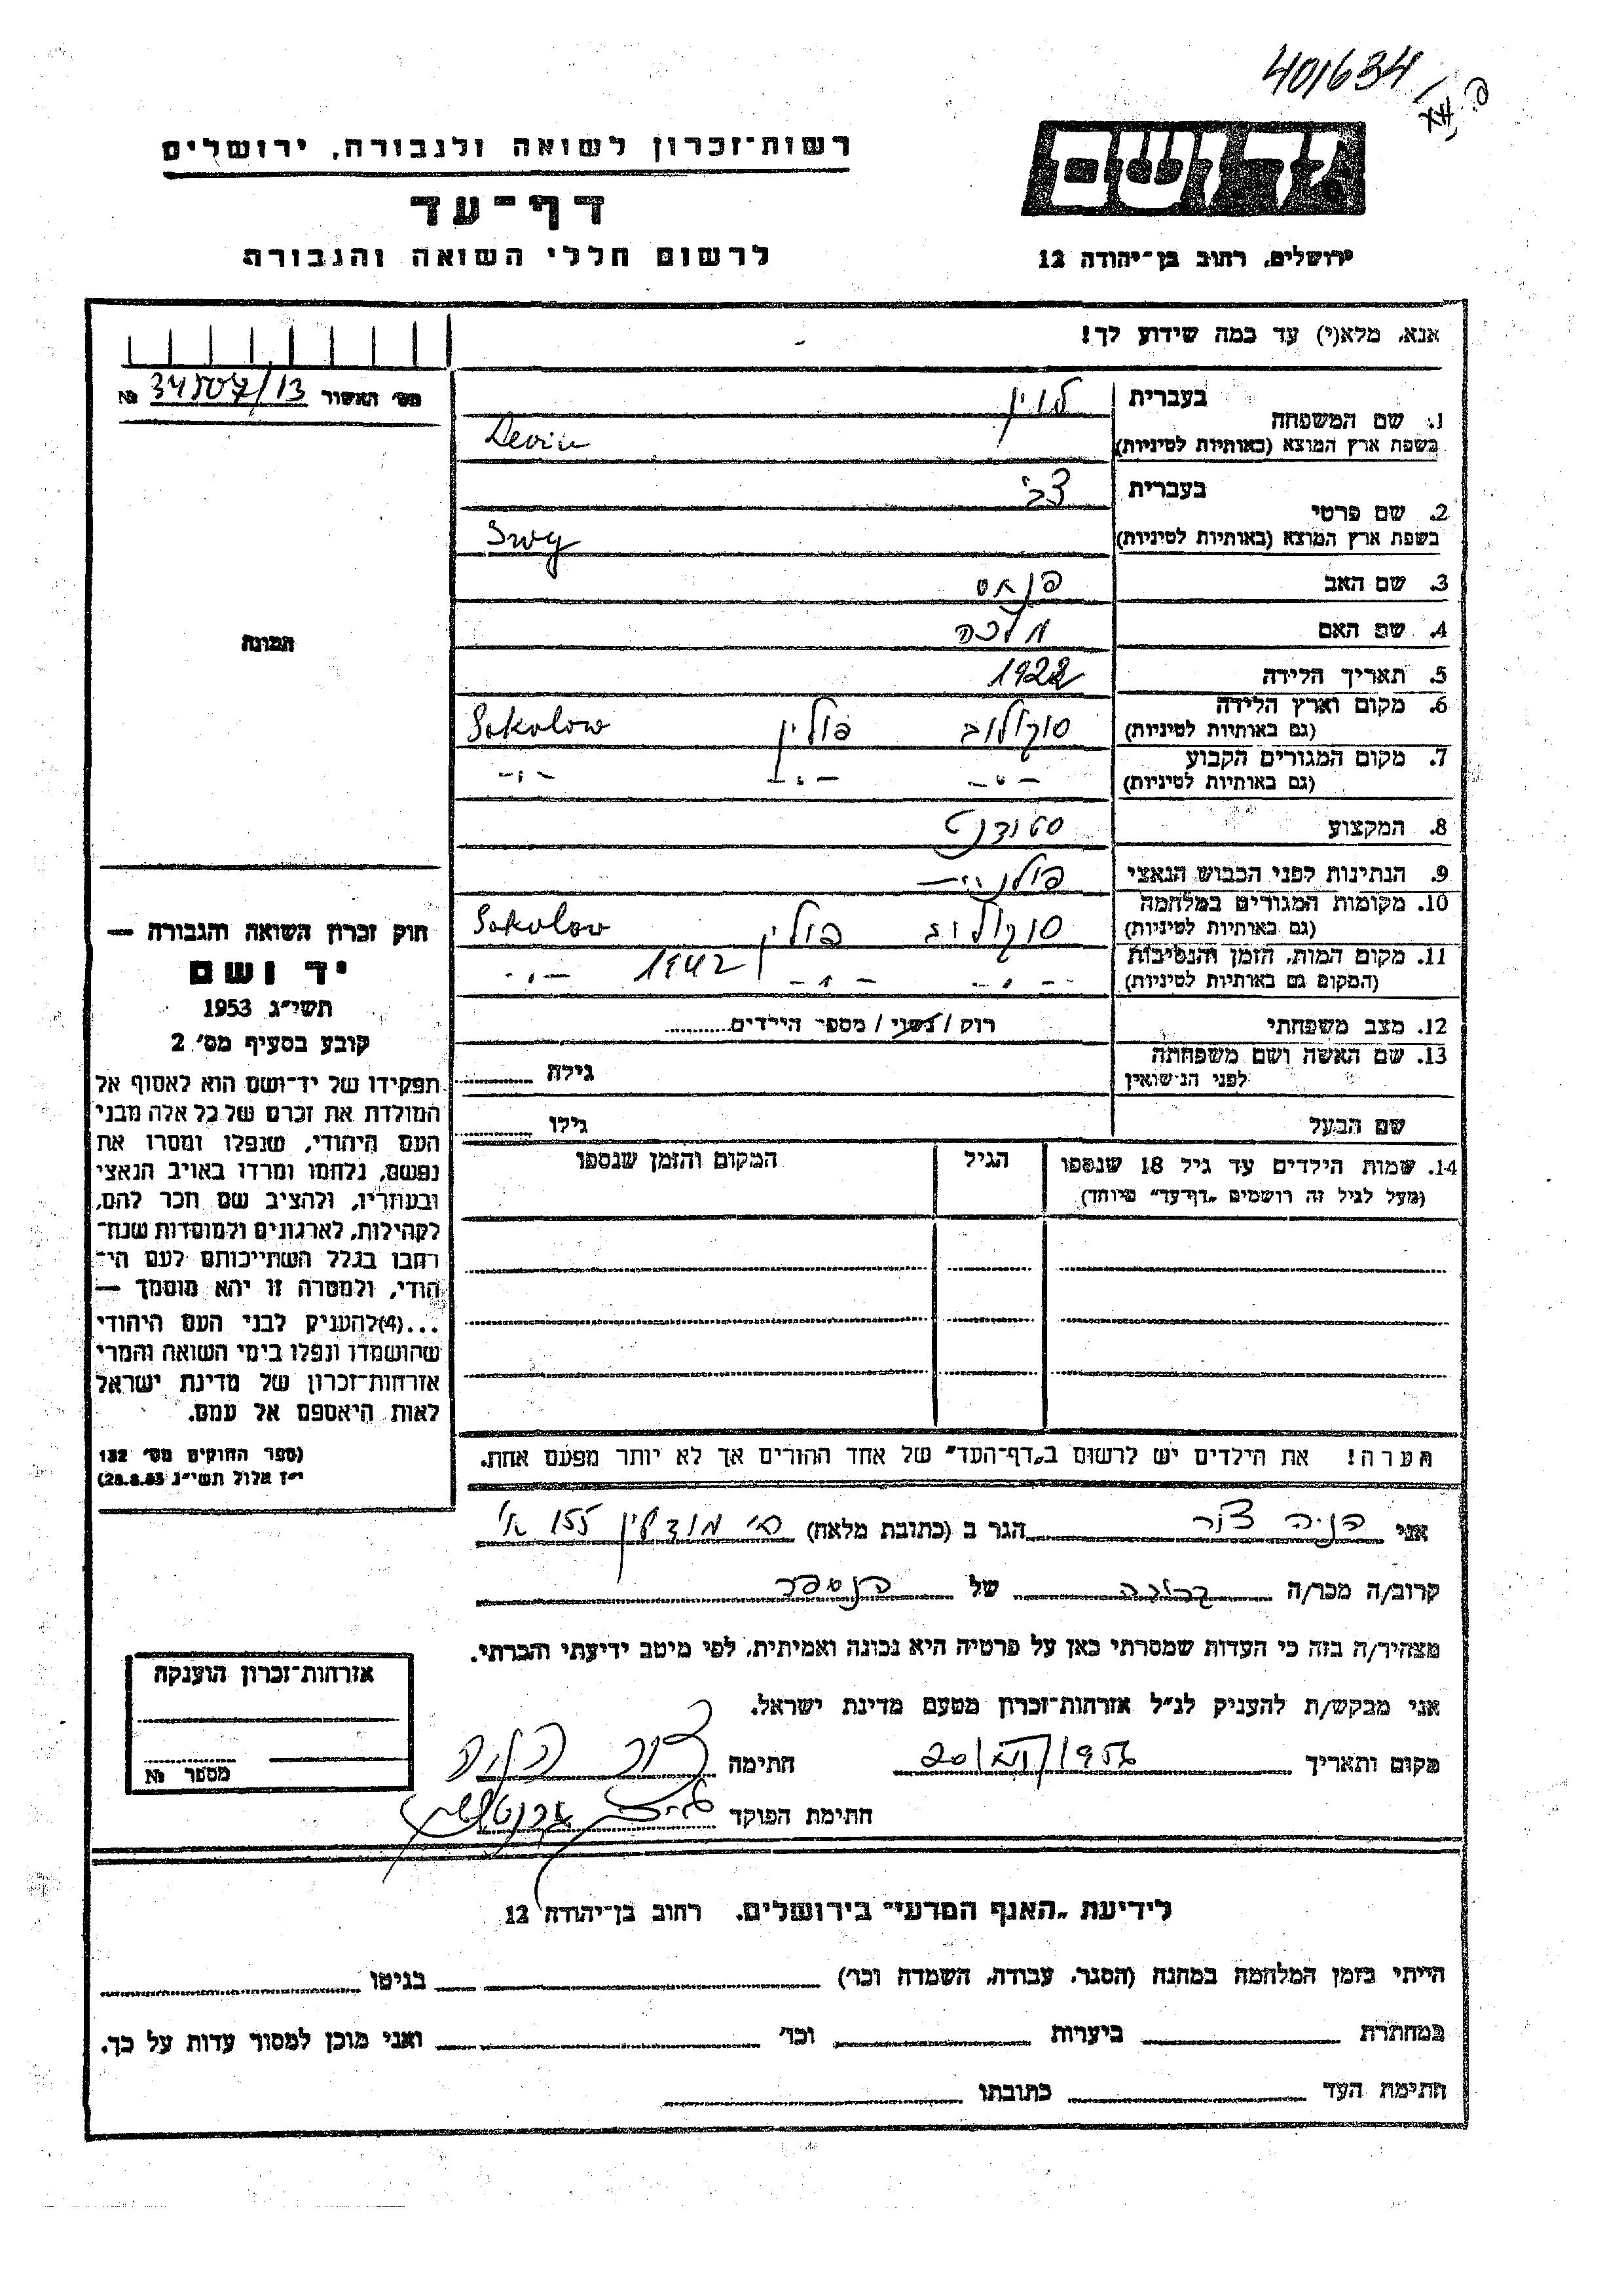 401634
יד ושם
רשות־זכרון לשואה ולגבורה, ירושלים
דף־עד
לרשום חללי השואה והגבורה
ירושלים, רחוב בן־יהודה 12
אנא, מלא(י) עד כמה שידוע לך!
מס׳ האשור 34507/13 №
1. שם המשפחה
בעברית לוין
בשפת ארץ המוצא (באותיות לטיניות) Levin
2. שם פרטי
בעברית צבי
בשפת ארץ המוצא (באותיות לטיניות) Zwy
3. שם האב פנחס
4. שם האם מלכה
5. תאריך הלידה 1922
6. מקום וארץ הלידה (גם באותיות לטיניות) סוקולוב פולין Sokolow
7. מקום המגורים הקבוע (גם באותיות לטיניות) -"- -"- -"-
8. המקצוע סטודנט
9. הנתינות לפני הכבוש הנאצי פולנית
10. מקומות המגורים במלחמה (גם באותיות לטיניות) סוקולוב פולין Sokolow
11. מקום המות, הזמן והנסיבות (המקום גם באותיות לטיניות) -"- -"- 1942 -"-
12. מצב משפחתי רוק / נשוי / מספר הילדים
13. שם האשה ושם משפחתה לפני הנישואין גילה
שם הבעל גילו
14. שמות הילדים עד גיל 18 שנספו הגיל המקום והזמן שנספו
(מעל לגיל זה רושמים „דף־עד” מיוחד)
תמונה
חוק זכרון השואה והגבורה —
יד ושם
תשי״ג 1953
קובע בסעיף מס׳ 2
תפקידו של יד־ושם הוא לאסוף אל
המולדת את זכרם של כל אלה מבני
העם היהודי, שנפלו ומסרו את
נפשם, נלחמו ומרדו באויב הנאצי
ובעוזריו, ולהציב שם וזכר להם,
לקהילות, לארגונים ולמוסדות שנח־
רבו בגלל השתייכותם לעם הי־
הודי, ולמטרה זו יהא מוסמך —
...(4)להעניק לבני העם היהודי
שהושמדו ונפלו בימי השואה והמרי
אזרחות־זכרון של מדינת ישראל
לאות היאספם אל עמם.
(ספר החוקים מס׳ 132
י״ז אלול תשי״ג 28.8.53)
הערה! את הילדים יש לרשום ב„דף־העד” של אחד ההורים אך לא יותר מפעם אחת.
אני צור הגר ב (כתובת מלאה) 155
קרוב/ה מכר/ה של
מצהיר/ה בזה כי העדות שמסרתי כאן על פרטיה היא נכונה ואמיתית, לפי מיטב ידיעתי והכרתי.
אני מבקש/ת להעניק לנ״ל אזרחות־זכרון מטעם מדינת ישראל.
מקום ותאריך 20/VI/1956 חתימה צור
חתימת הפוקד
אזרחות־זכרון הוענקה
מספר №
לידיעת „האגף המדעי” בירושלים, רחוב בן־יהודה 12
הייתי בזמן המלחמה במחנה (הסגר, עבודה, השמדה וכו׳) בגיטו
במחתרת ביערות וכו׳ ואני מוכן למסור עדות על כך.
חתימת העד כתובתו